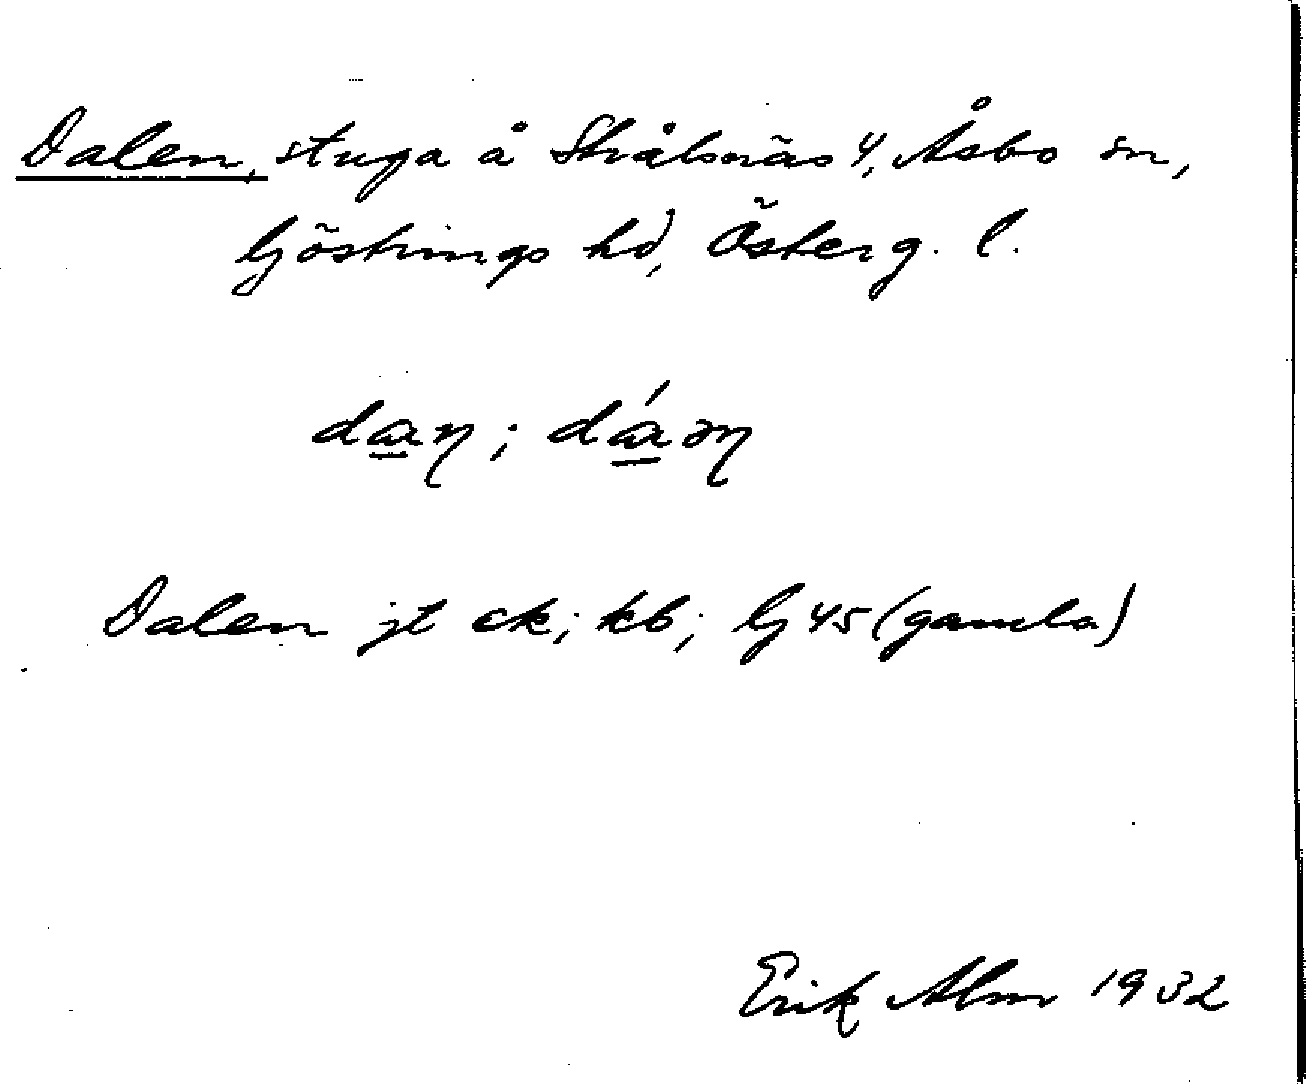 Dalen, stuga å Strålsnäs 4, Åsbo sn,
Göstrings hd, Österg. l.
dan; dáən
Dalen jt ck; kb; G 45 (gamla)
Erik Alm 1932